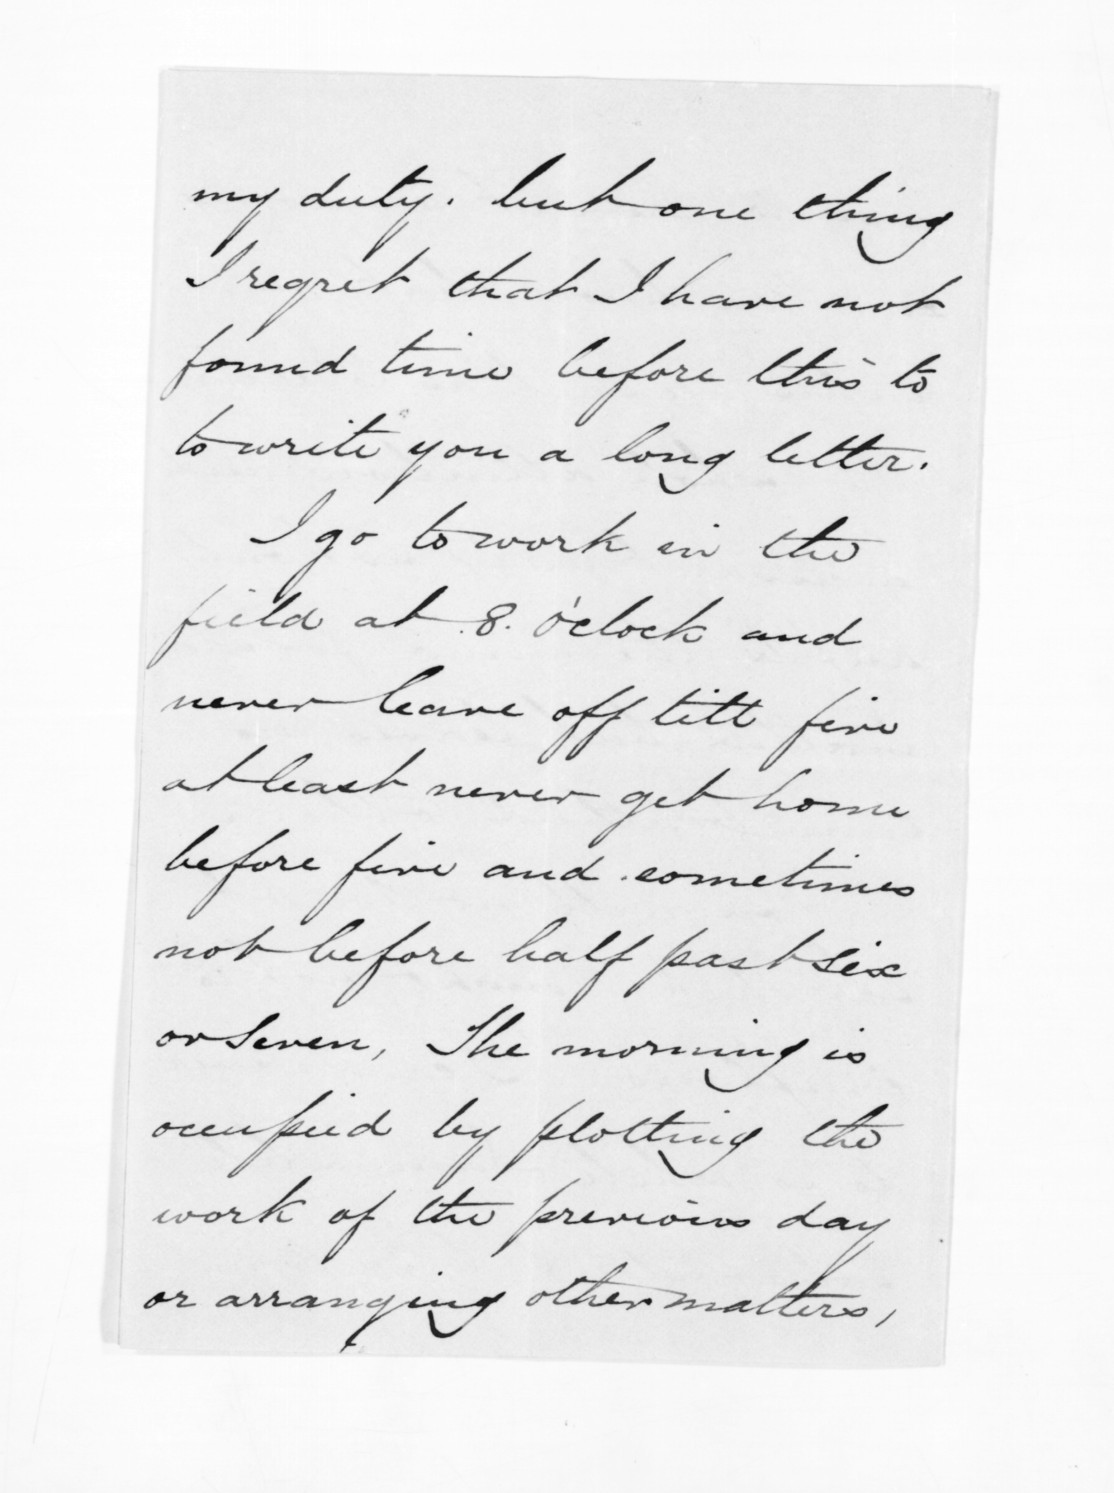 my duty. but one thing
I regret that I have not
found time before this to
to write you a long letter.
I go to work in the
field at .8. o'clock and
never leave off till five
at least never get home
before five and sometimes
not before half past six
or seven, The morning is
occupied by plotting the
work of the previous day
or arranging other matters,